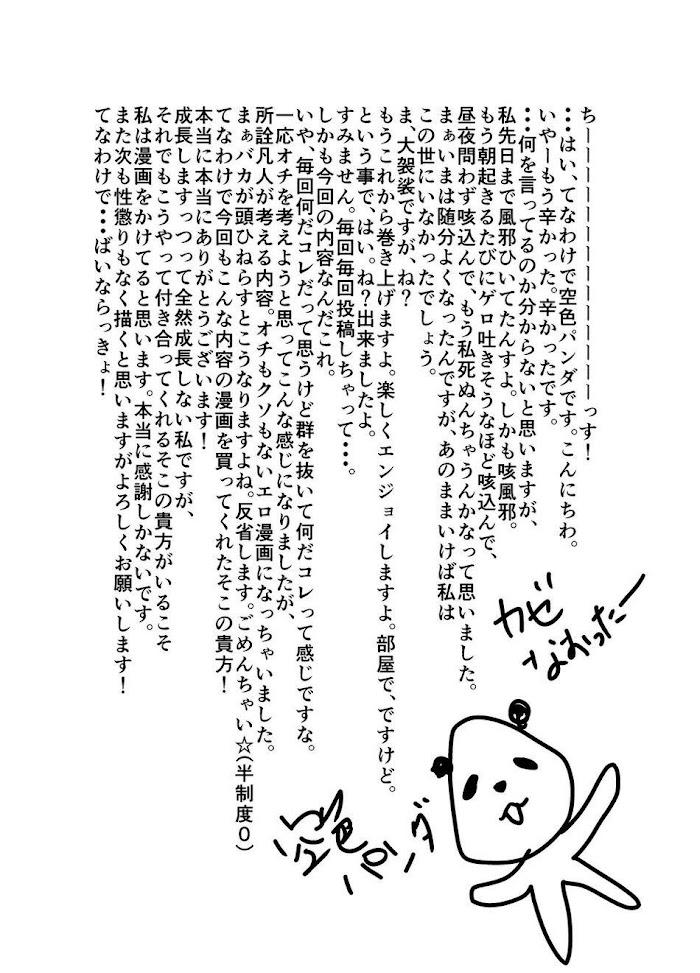 ちーーーーーーーーーーーっす！
・・はい、てなわけで空色パンダです。こんにちわ。
いやーもう辛かった。辛かったです。
・・何を言ってるのか分からないと思いますが、
私先日まで風邪ひいてたんすよ。しかも咳風邪。
もう朝起きるたびにゲロ吐きそうなほど咳込んで、
昼夜問わず咳込んで、もう私死ぬんちゃうんかなって思いました。
まぁいまは随分よくなったんですが、あのままいけば私は
この世にいなかったでしょう。
ま、大袈裟ですが、ね？
もうこれから巻き上げますよ。楽しくエンジョイしますよ。部屋で、ですけど。
という事で、はい。ね？出来ましたよ。
すみません。毎回毎回投稿しちゃって・・・。
しかも今回の内容なんだこれ。
いや、毎回何だコレだって思うけど群を抜いて何だコレって感じですな。
一応オチを考えようと思ってこんな感じになりましたが、
所詮凡人が考える内容。オチもクソもないエロ漫画になっちゃいました。
まぁバカが頭ひねらすとこうなりますよね。反省します。ごめんちゃい☆（半制度０）
てなわけで今回もこんな内容の漫画を買ってくれたそこの貴方！
本当に本当にありがとうございます！
成長しますっつって全然成長しない私ですが、
それでもこうやって付き合ってくれるそこの貴方がいるこそ
私は漫画をかけてると思います。本当に感謝しかないです。
また次も性懲りもなく描くと思いますがよろしくお願いします！
てなわけで・・・ばいならっきょ！
カゼ
なおったー
空色パンダ